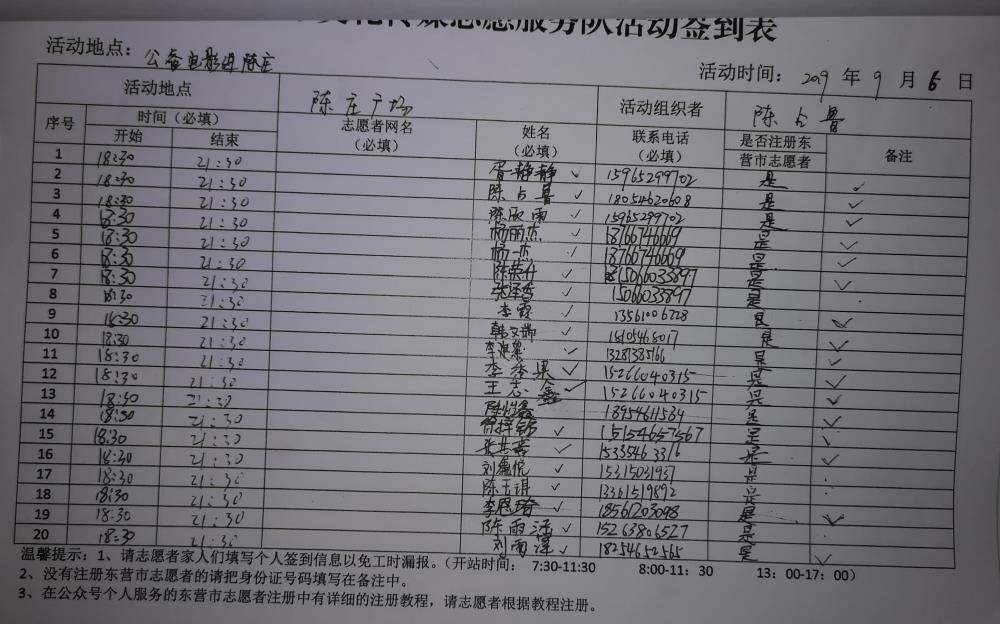 文化传媒志愿服务队活动签到表
活动地点：公益电影进陈庄 活动时间：2019年9月6日
活动地点 陈庄广场 活动组织者 陈占鲁
序号 时间（必填） 志愿者网名（必填） 姓名（必填） 联系电话（必填） 是否注册东营市志愿者 备注
开始 结束
1 18:30 21:30 胥静静 ✓ 15965299702 是 ✓
2 18:30 21:30 陈占鲁 ✓ 18054620608 是 ✓
3 18:30 21:30 陈欣雨 ✓ 15965299702 是 ✓
4 18:30 21:30 杨丽杰 ✓ 18766746669 是 ✓
5 18:30 21:30 杨一杰 ✓ 18766746669 是 ✓
6 18:30 21:30 ✓ 15066033897 是
7 18:30 21:30 ✓ 15066033897 是
8 18:30 21:30 李霞 ✓ 13561006228 是 ✓
9 18:30 21:30 韩文瑞 18105468017 是
10 18:30 21:30 ✓ 13281385166 是 ✓
11 18:30 21:30 ✓ 15266040315 是 ✓
12 18:30 21:30 王志鑫 ✓ 15266040315 是 ✓
13 18:30 21:30 18954611584 是
14 18:30 21:30 ✓ 15154657567 是 ✓
15 18:30 21:30 ✓ 15335463376 是
16 18:30 21:30 刘鑫悦 ✓ 15315031937 是 ✓
17 18:30 21:30 陈玉琪 ✓ 13361519892 是
18 18:30 21:30 李恩琦 ✓ 18561203098 是
19 18:30 21:30 陈雨涵 ✓ 15263806527 是 ✓
20 18:30 21:30 刘雨泽 ✓ 18254652565 是 ✓
温馨提示：1、请志愿者家人们填写个人签到信息以免工时漏报。（开站时间： 7:30-11:30 8:00-11：30 13：00-17：00）
2、没有注册东营市志愿者的请把身份证号码填写在备注中。
3、在公众号个人服务的东营市志愿者注册中有详细的注册教程，请志愿者根据教程注册。